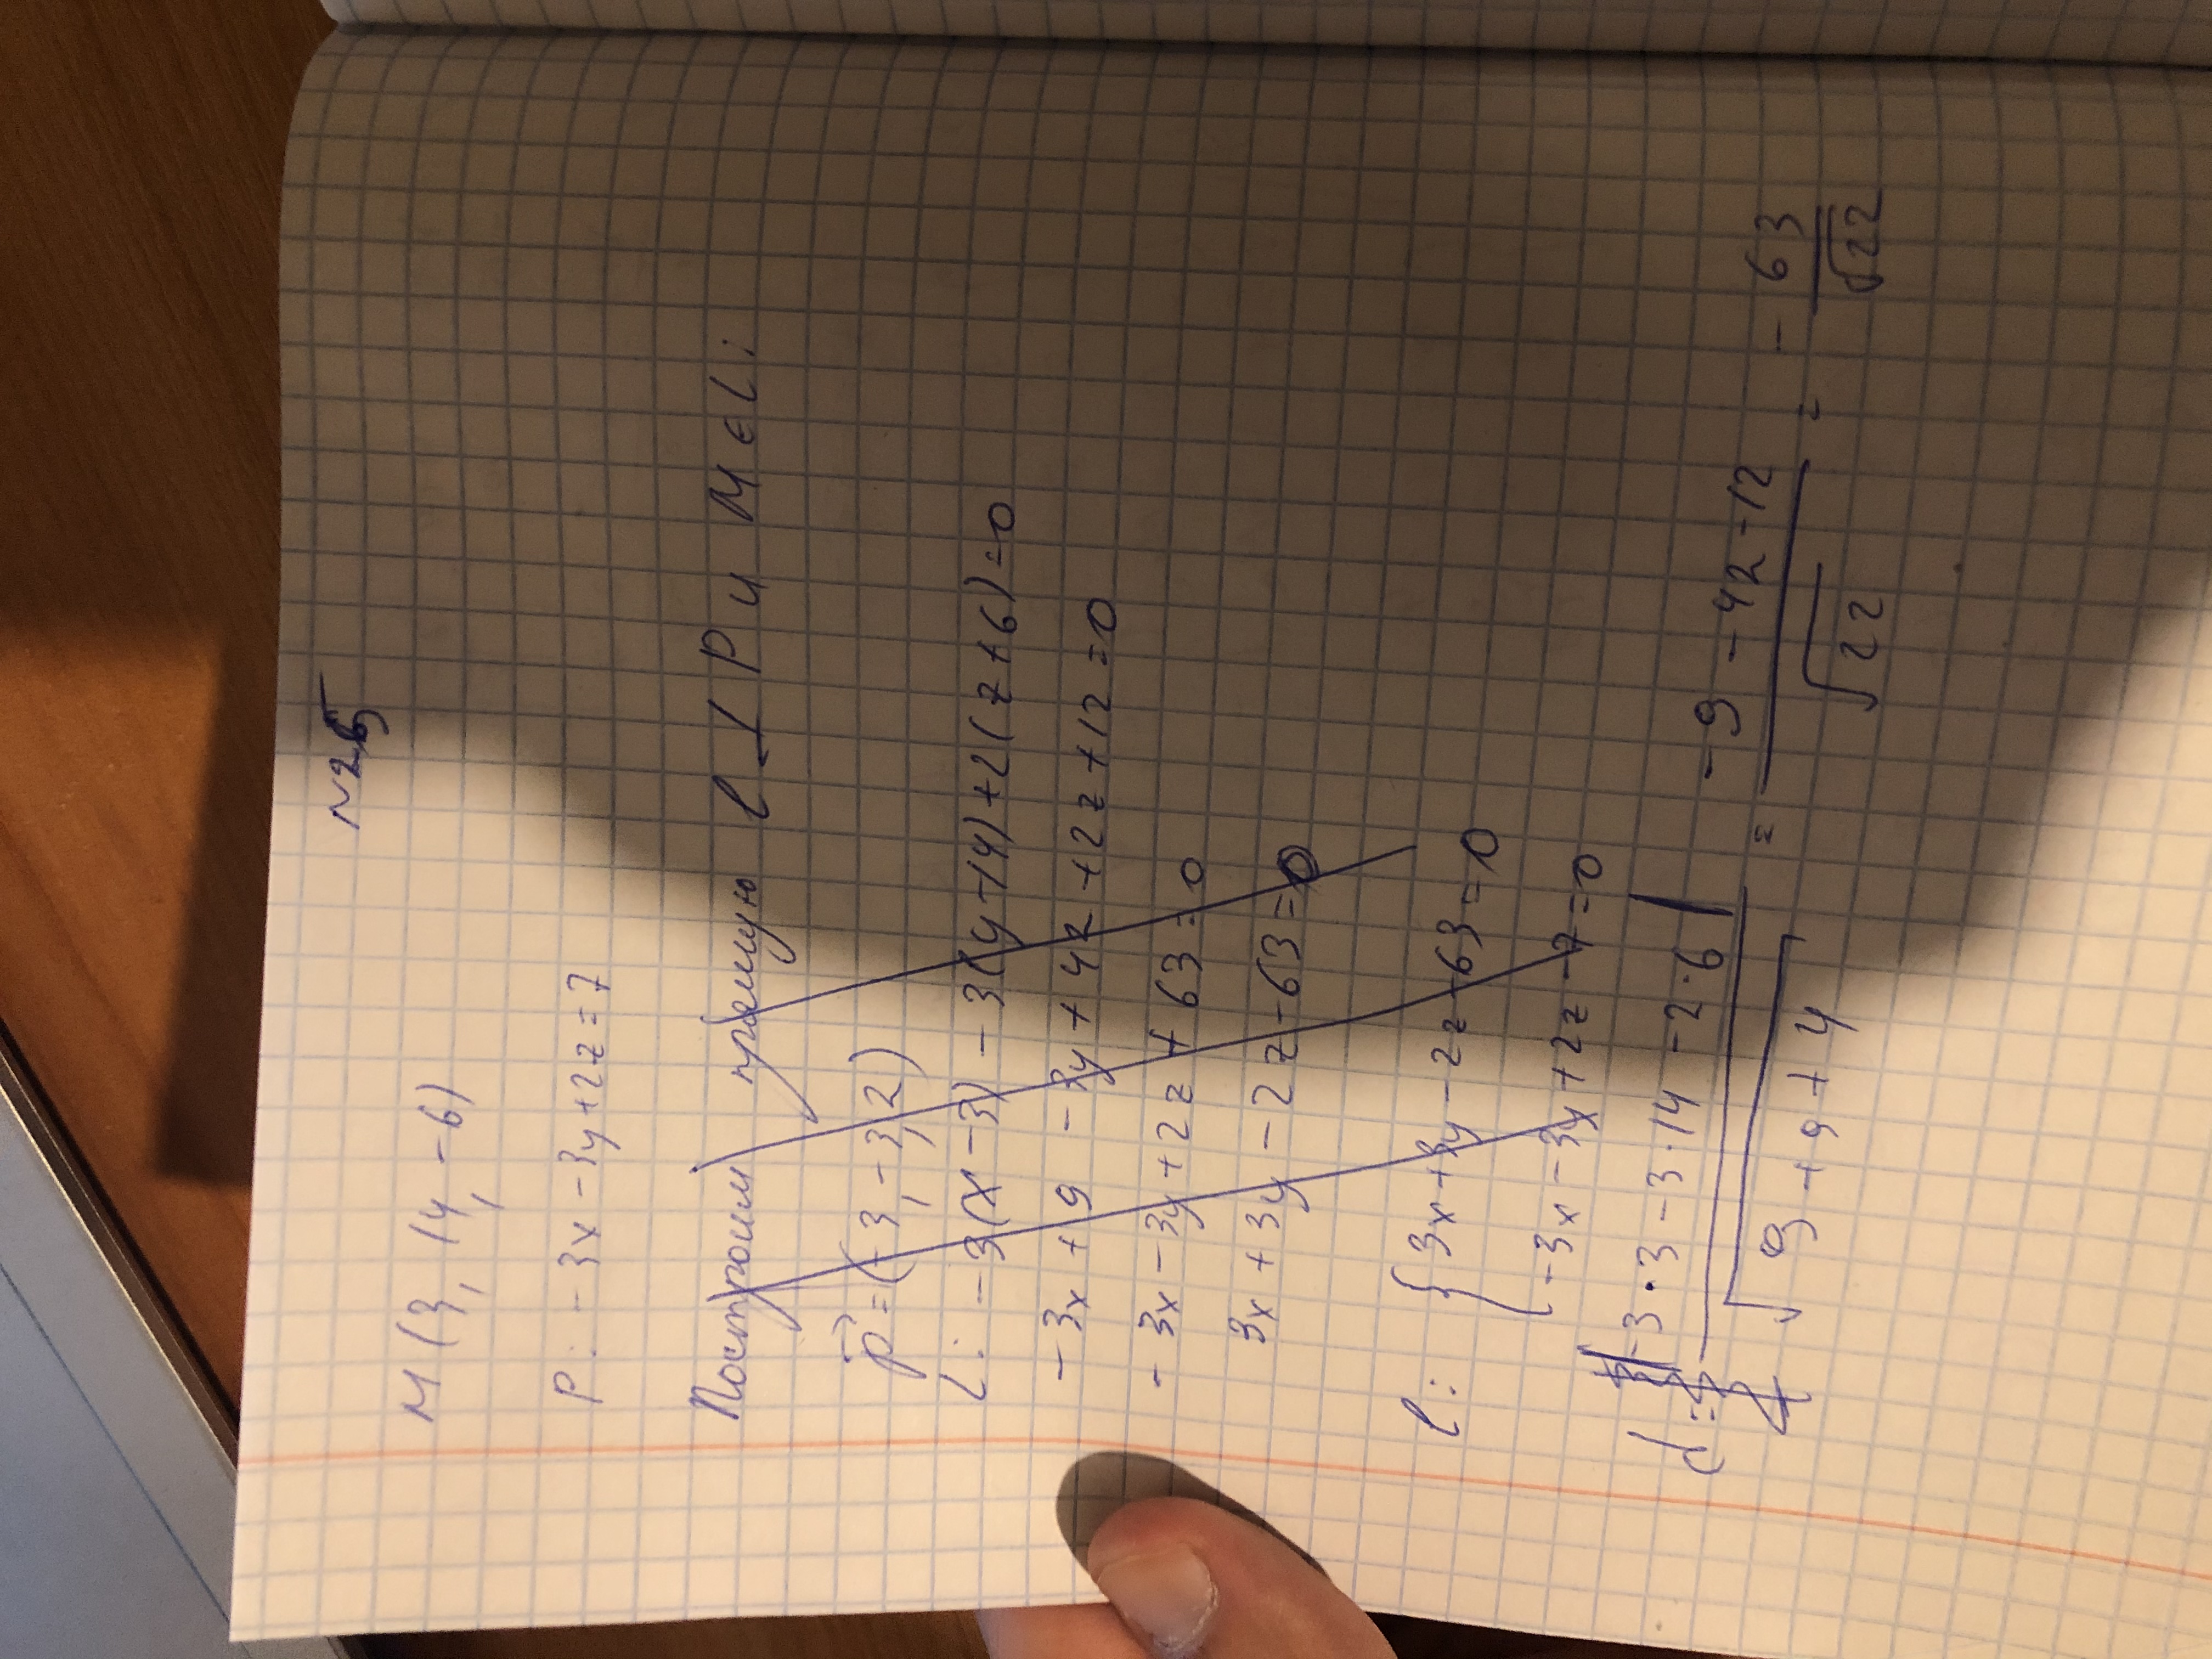 N25
M(3, 14, -6)
P: -3x-3y+2z=7
Построим прямую l⊥P и M∈L:
p⃗=(-3,-3,2)
L: -3(x-3)-3(y-14)+2(z+6)=0
-3x+9-3y+42+2z+12=0
-3x-3y+2z+63=0
3x+3y-2z-63=0
l: {3x+3y-2z-63=0
-3x-3y+2z-7=0
d = |-3·3-3·14-2·6| / √9+9+4 = -9-42-12 / √22 = -63/√22